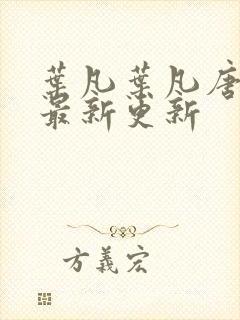 葉凡葉凡唐
最新更新
方義宏